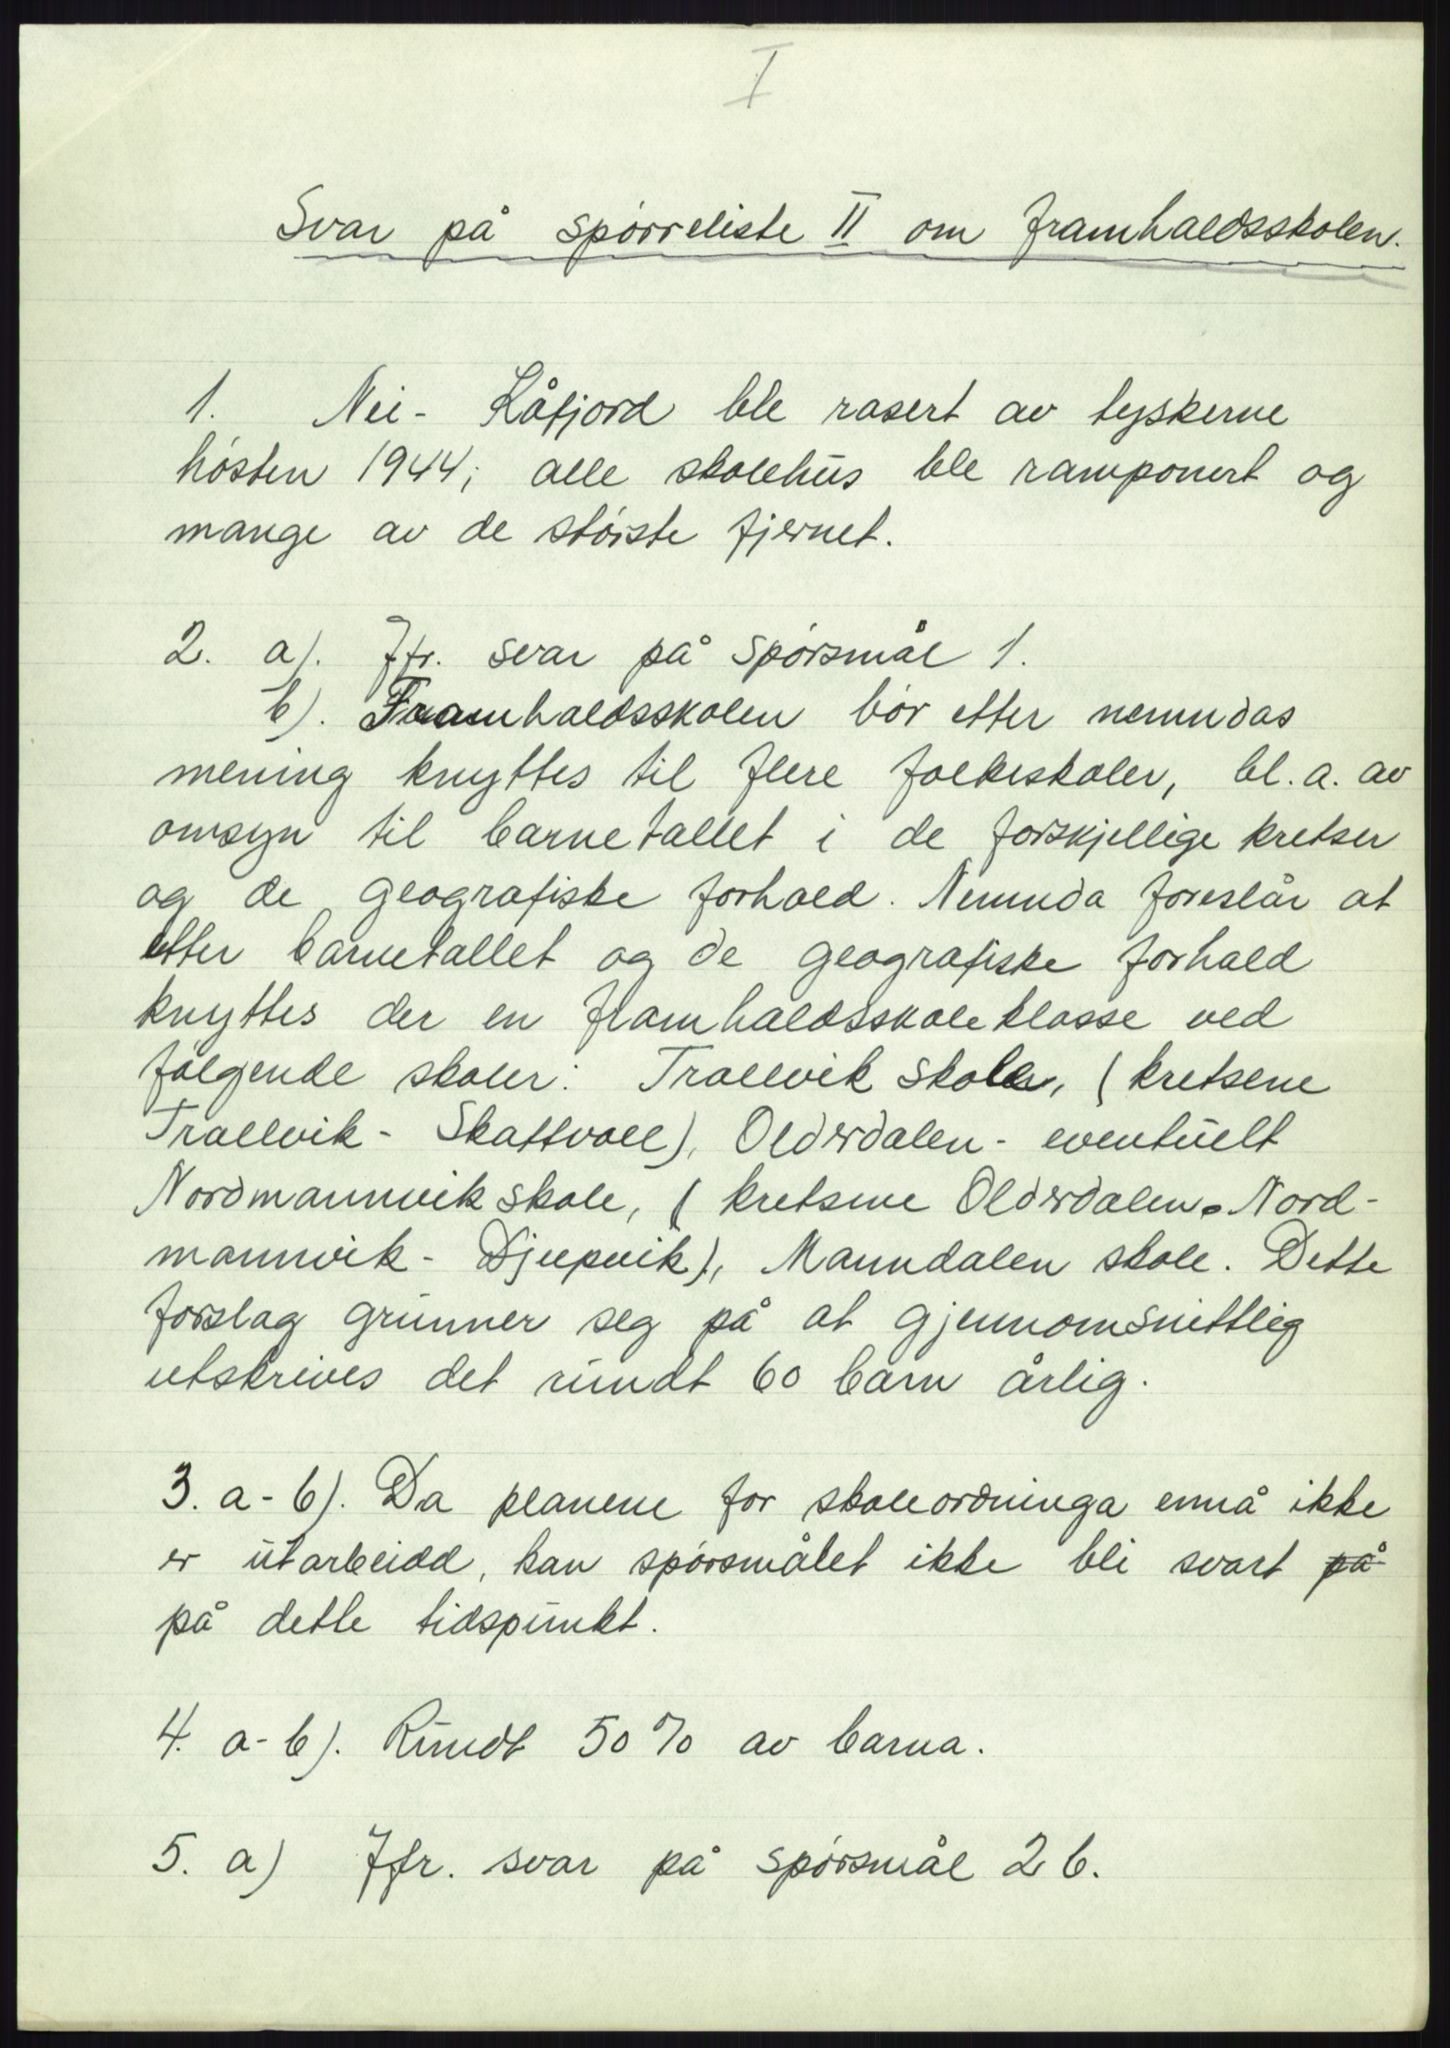 I
Svar på spørreliste II om framhaldsskolen.
1. Nei - Kåfjord ble rasert av tyskerne
høsten 1944; alle skolehus ble ramponert og
mange av de største fjernet.
2. a). Jfr. svar på spørsmål 1.
b). Framhaldsskolen bør etter nemndas
mening knyttes til flere folkeskoler, bl. a. av
omsyn til barnetallet i de forskjellige kretser
og de geografiske forhold. Nemnda foreslår at
etter barnetallet og de geografiske forhold
knyttes der en framhaldsskoleklasse ved
følgende skoler: Trollvik skole, (kretsene
Trollvik - Skattvoll), Olderdalen - eventuelt
Nordmannvik skole, (kretsene Olderdalen - Nord-
mannvik - Djupvik), Manndalen skole. Dette
forslag grunner seg på at gjennomsnittlig
utskrives det rundt 60 barn årlig.
3. a - b). Da planene for skoleordninga ennå ikke
er utarbeidd, kan spørsmålet ikke bli svart på
på dette tidspunkt.
4. a - b). Rundt 50 % av barna.
5. a) Jfr. svar på spørsmål 2 b.